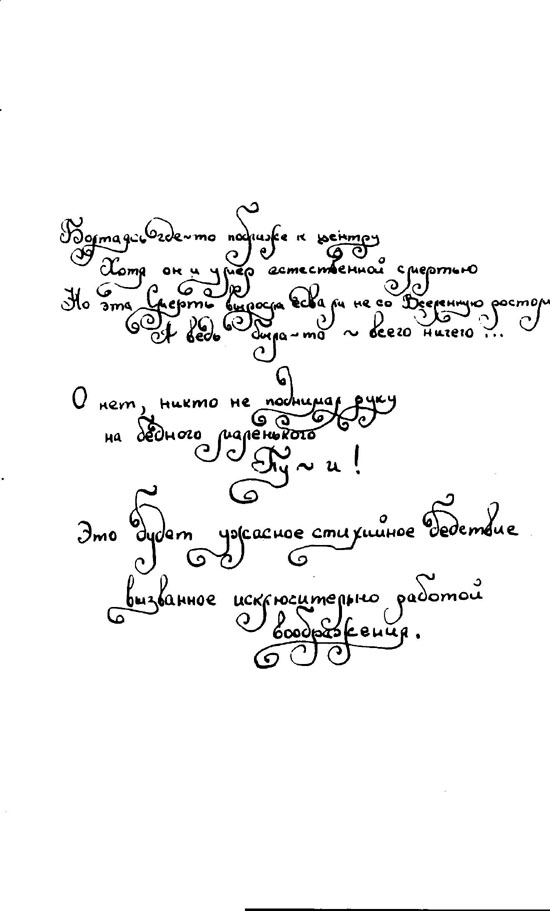 Болтались где-то поближе к центру
Хотя он и умер естественной смертью
Но эта Смерть выросла едва ли не со Вселенную ростом
А ведь была-то ~ всего ничего ...
О нет, никто не поднимал руку
на бедного маленького
Пу ~ и !
Это будет ужасное стихийное бедствие
вызванное исключительно работой
воображения.